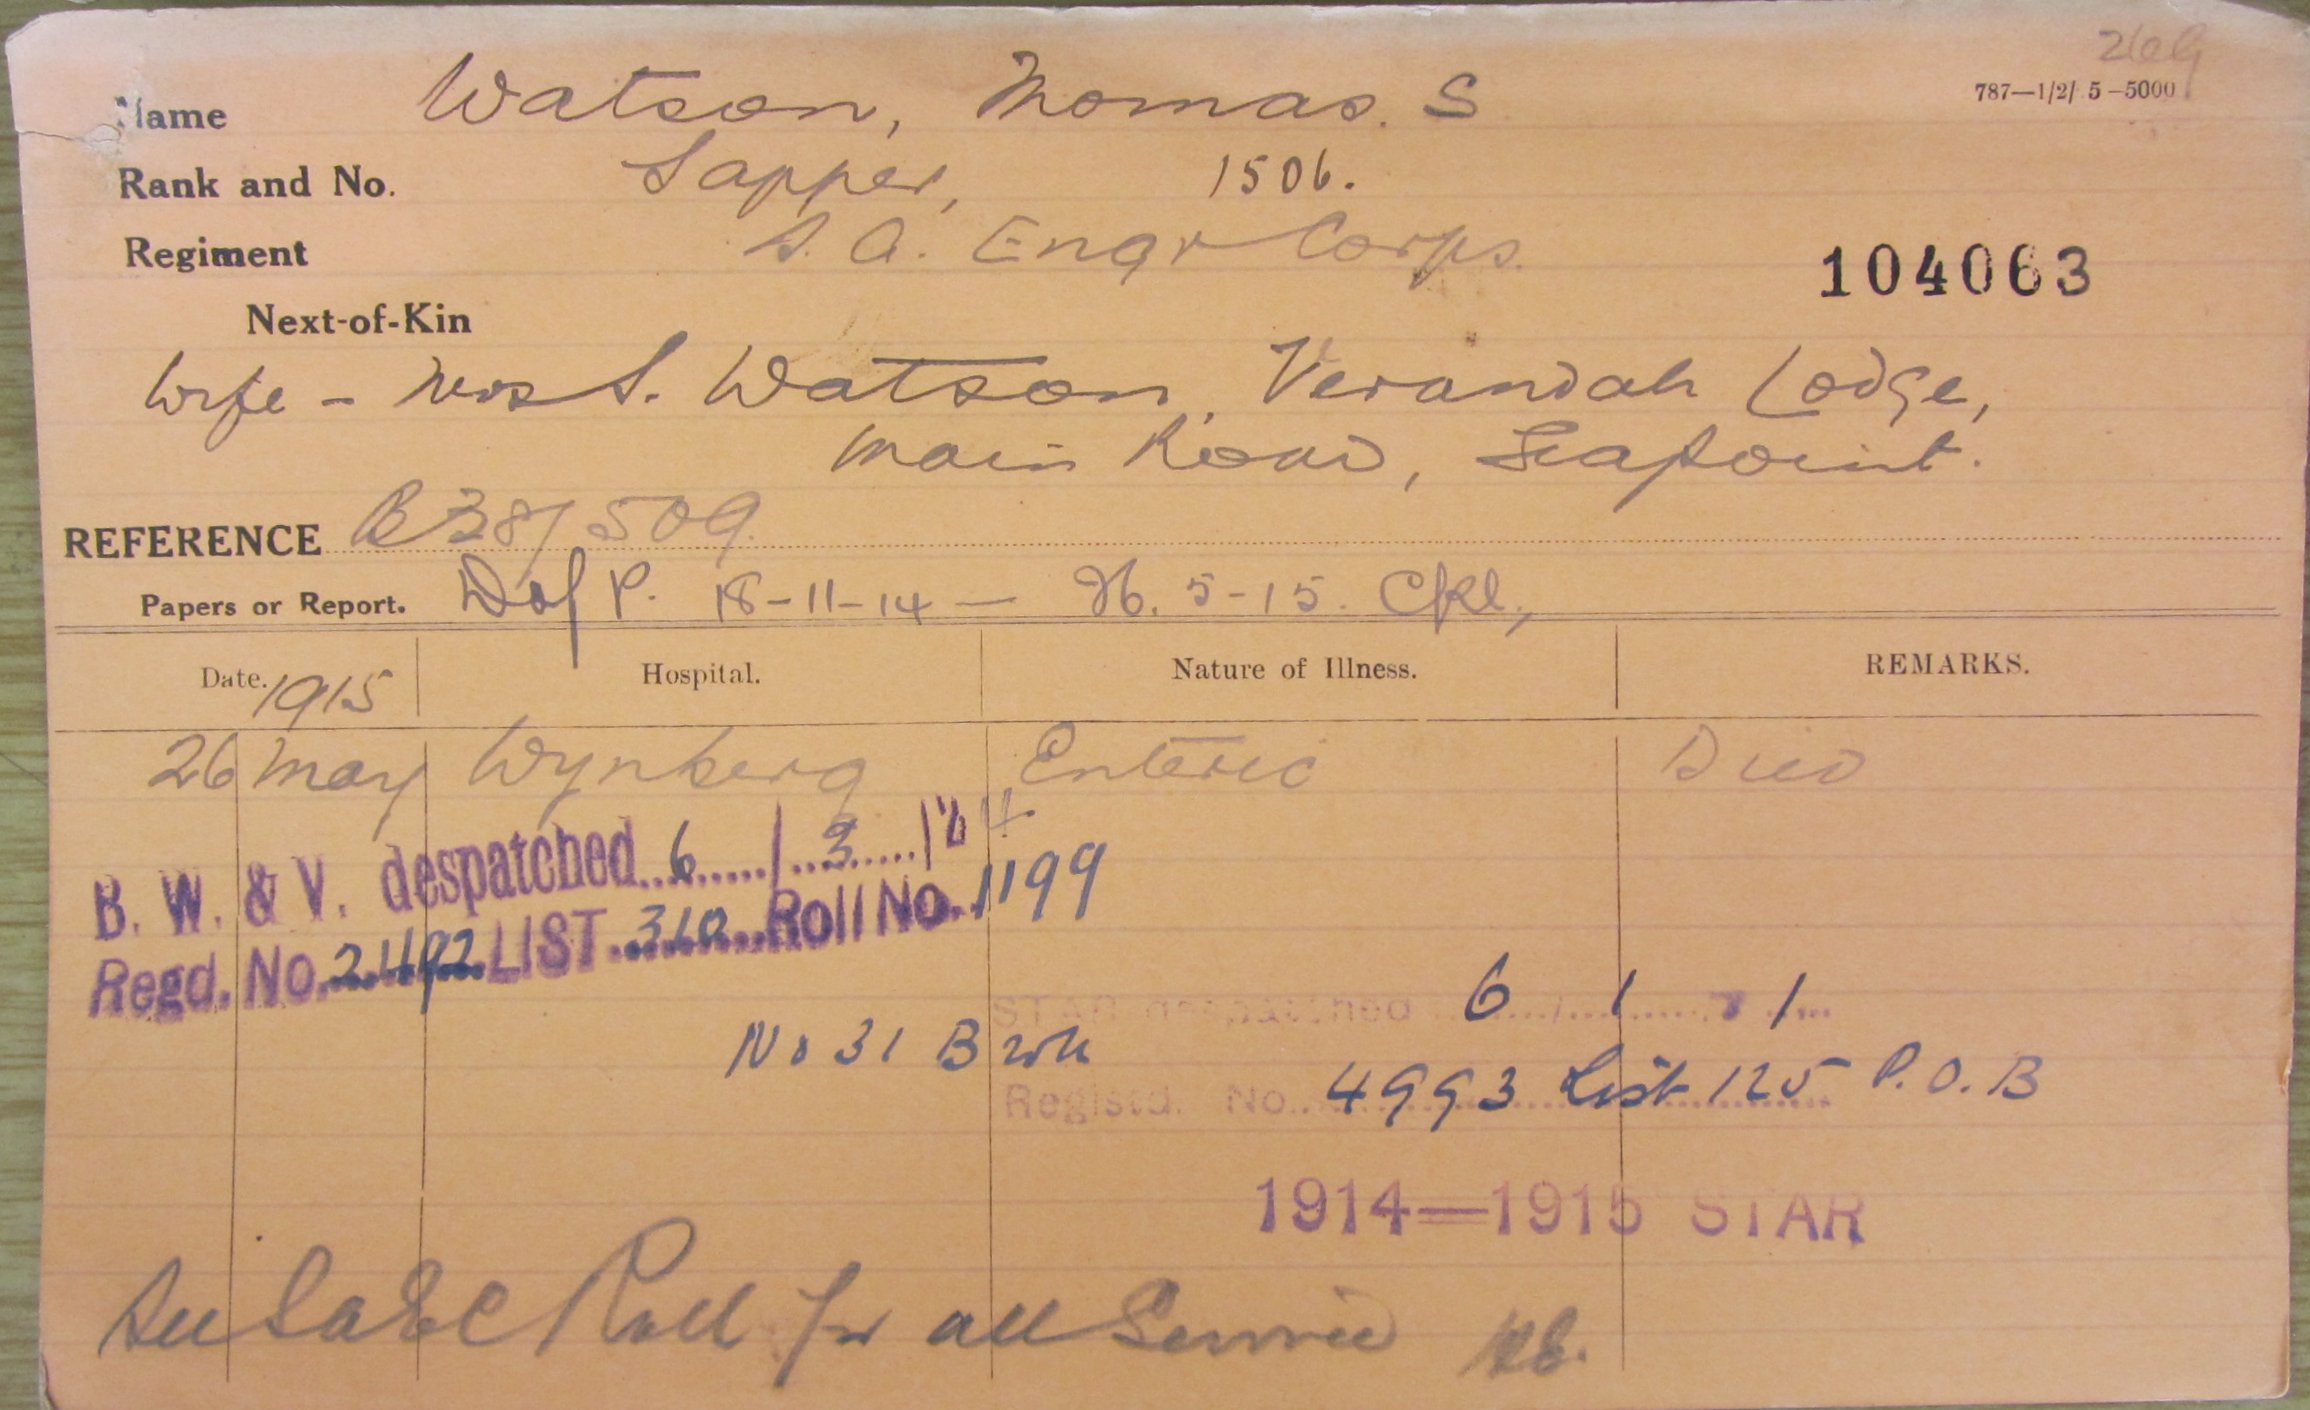 787—1/2/ 5—5000
Name Watson, Thomas. S
Rank and No. Sapper, 1506.
Regiment S.A. Engr Corps.
104063
Next-of-Kin
Wife - Mrs S. Watson, Verandah Lodge,
Main Road, Seapoint.
REFERENCE B38/509.
Papers or Report. D of P. 18-11-14 — 26. 5-15.
Date. 1915 Hospital. Nature of Illness. REMARKS.
26 May Wynberg Enteric Died
B. W. & V. despatched 6/3/24
Regd. No. 21192 LIST 310 Roll No. 1199
STAR despatched 6 / 1 /
No 31 B
Registd. No. 4993 List 125 P.O.B
1914—1915 STAR
See SAEC Roll for all Service